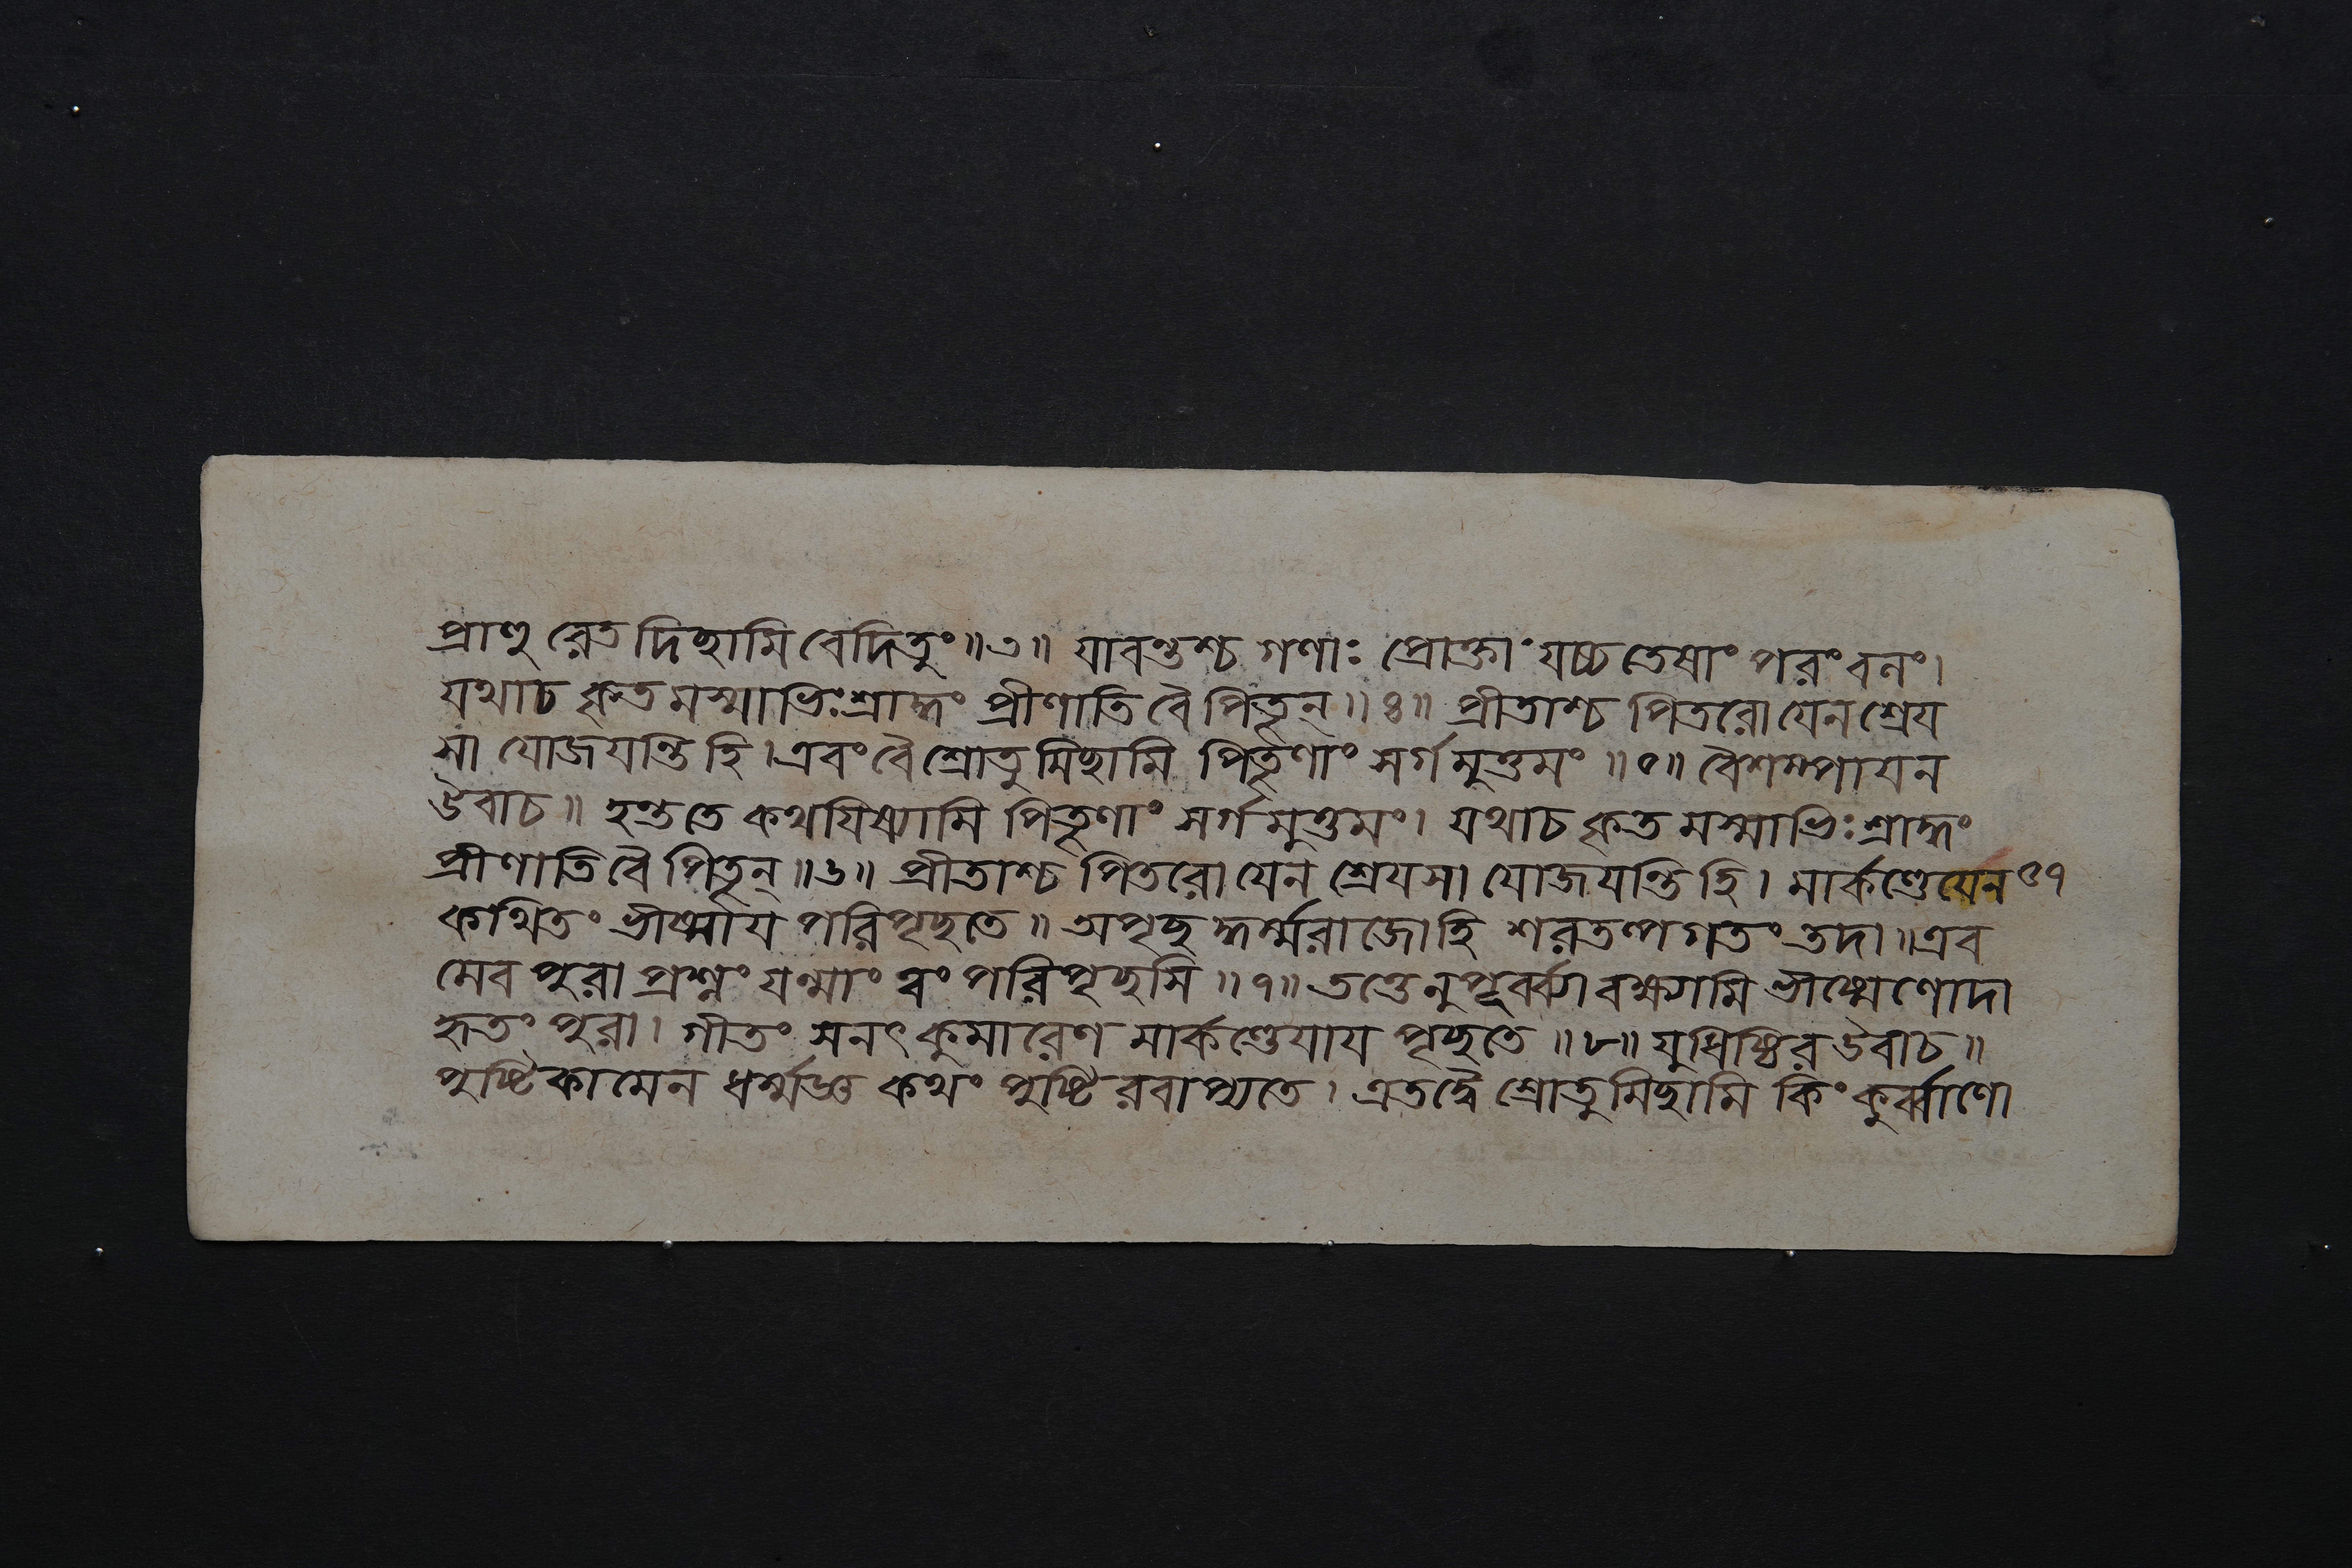 প্রাপ্নুরেতদিচ্ছামি বেদিতুং॥৩॥ যাবন্তশ্চ গণাঃ প্রোক্তা যচ্চ তেষাং পরং বলং।
যথাচ কৃতমস্মাভিঃ শ্রাদ্ধং প্রীণাতি বৈ পিতৄন্॥৪॥ প্রীতাশ্চ পিতরো যেন শ্রেয
সা যোজযন্তি হি। এবং বৈ শ্রোতুমিচ্ছামি পিতৄণাং সর্গমুত্তমং॥৫॥ বৈশম্পাযন
উবাচ॥ হন্ত তে কথযিষ্যামি পিতৄণাং সর্গমুত্তমং। যথাচ কৃতমস্মাভিঃ শ্রাদ্ধং
প্রীণাতি বৈ পিতৄন্॥৬॥ প্রীতাশ্চ পিতরো যেন শ্রেযসা যোজযন্তি হি। মার্কণ্ডেযেন ৩৭
কথিতং ভীষ্মায পরিপৃচ্ছতে॥ অপৃচ্ছদ্ধর্ম্মরাজো হি শরতল্পগতং তদা॥ এব
মেব পুরা প্রশ্নং যন্মাং ত্বং পরিপৃচ্ছসি॥৭॥ তত্তেনুপূর্ব্ব্যা বক্ষ্যামি ভীষ্মেণোদা
হৃতং পুরা। গীতং সনৎকুমারেণ মার্কণ্ডেযায পৃচ্ছতে॥৮॥ যুধিষ্ঠির উবাচ॥
পুষ্টিকামেন ধর্ম্মজ্ঞ কথং পুষ্টিরবাপ্যতে। এতদ্বৈ শ্রোতুমিচ্ছামি কিং কুর্ব্বাণো